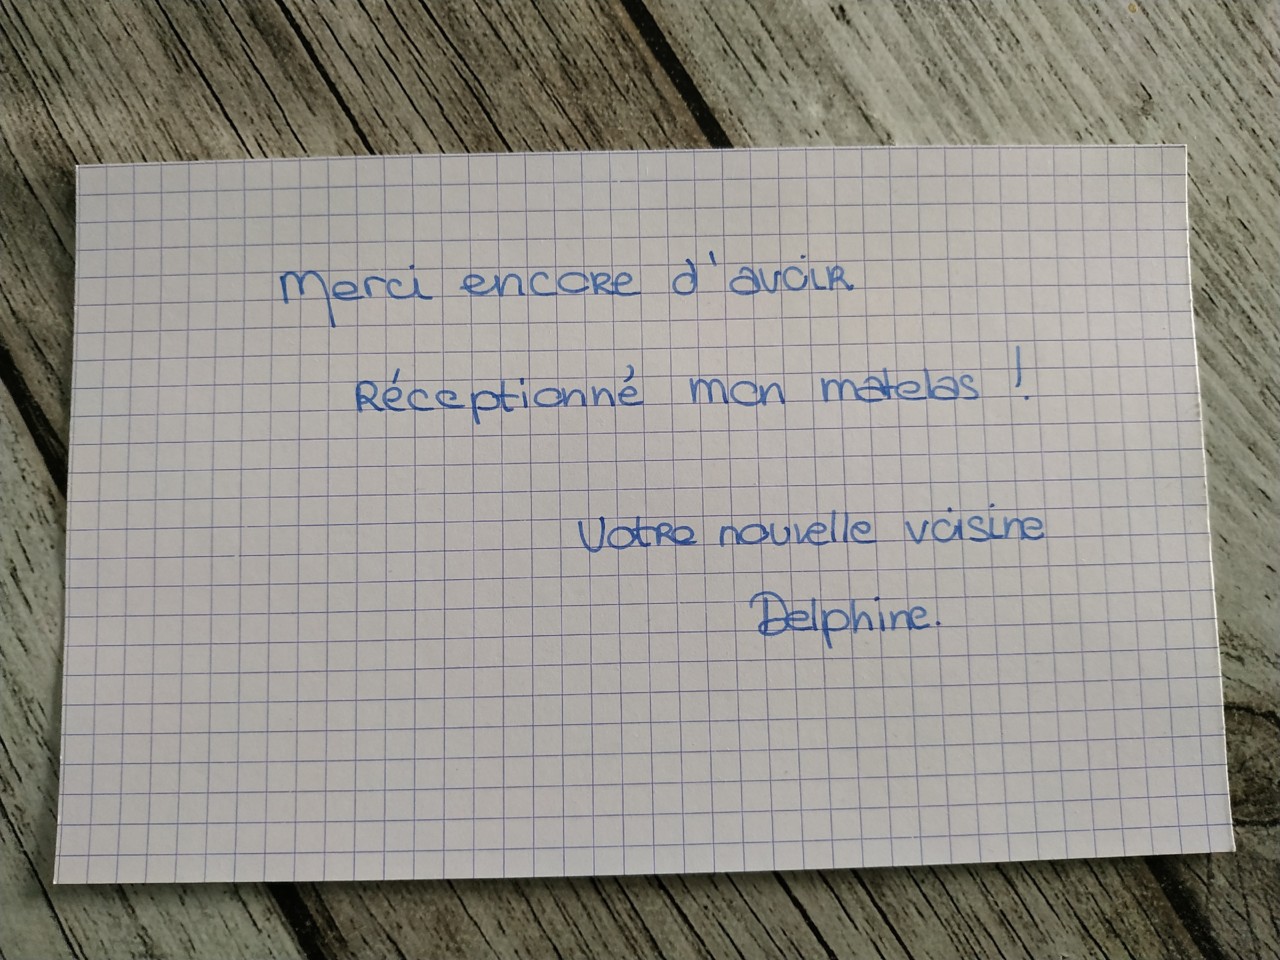 Merci encore d'avoir
Réceptionné mon matelas !
Votre nouvelle voisine
Delphine.